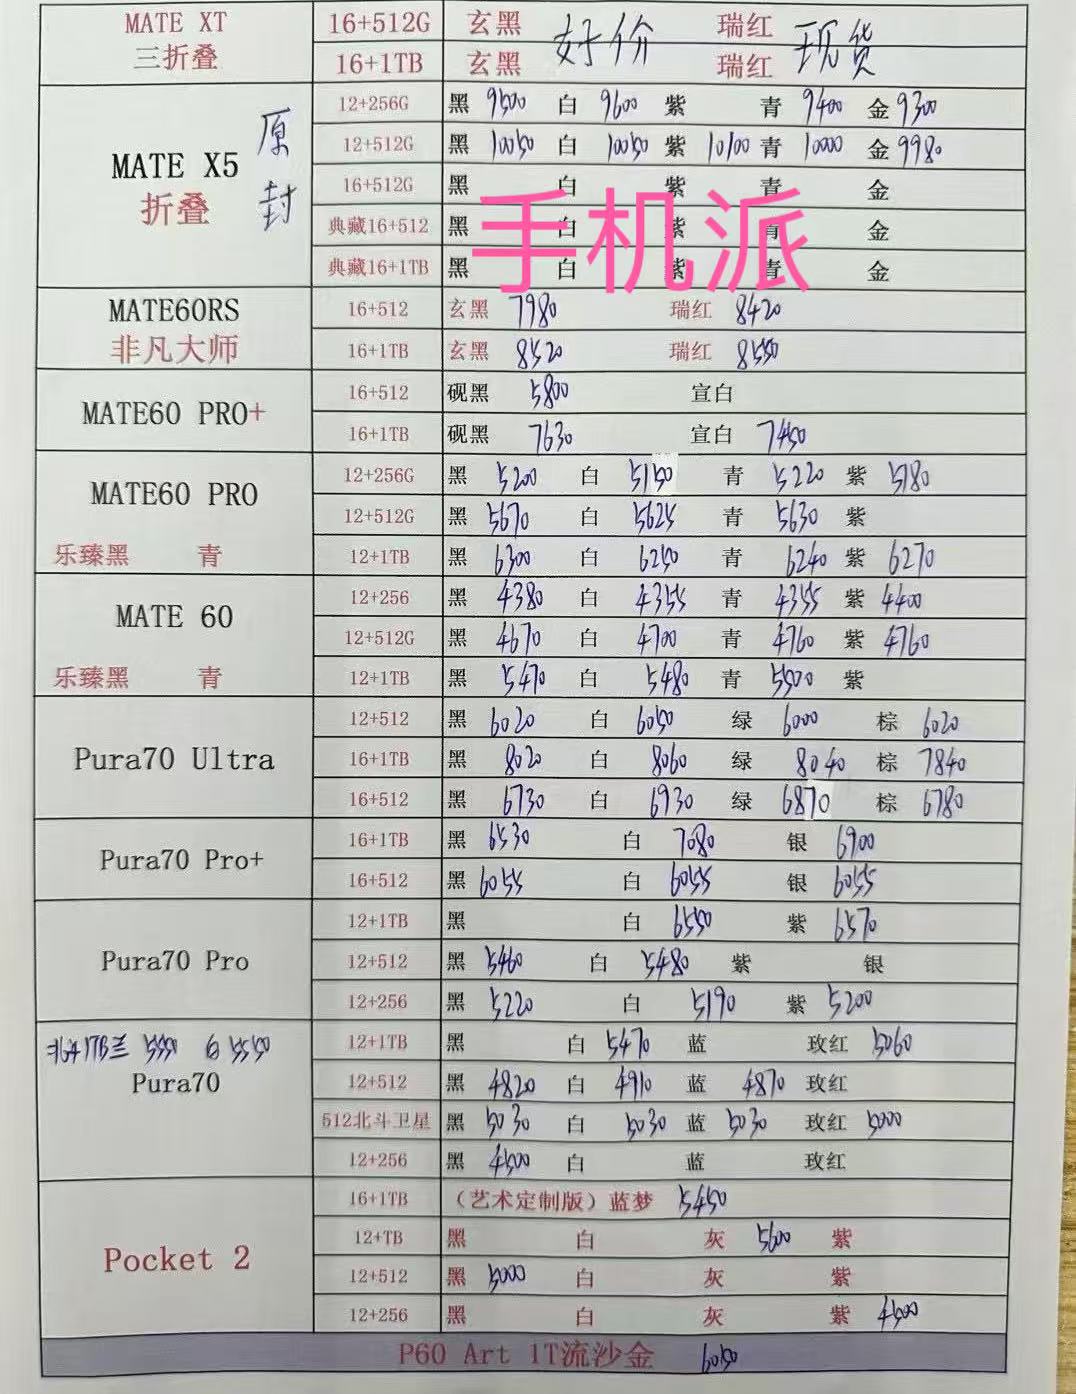 MATE XT 16+512G 玄黑 好价 瑞红 现货
三折叠 16+1TB 玄黑 瑞红
MATE X5 折叠 原封
12+256G 黑 9500 白 9600 紫 青 9400 金 9300
12+512G 黑 10050 白 10050 紫 10100 青 10000 金 9980
16+512G 黑 白 紫 青 金
典藏16+512 黑 白 紫 青 金
典藏16+1TB 黑 白 紫 青 金
手机派
MATE60RS 16+512 玄黑 7980 瑞红 8420
非凡大师 16+1TB 玄黑 8520 瑞红 8550
MATE60 PRO+
16+512 砚黑 5800 宣白
16+1TB 砚黑 7630 宣白 7450
MATE60 PRO 12+256G 黑 5200 白 5150 青 5220 紫 5180
12+512G 黑 5670 白 5625 青 5630 紫
乐臻黑 青 12+1TB 黑 6300 白 6250 青 6240 紫 6270
MATE 60 12+256 黑 4380 白 4355 青 4355 紫 4400
12+512G 黑 4670 白 4700 青 4760 紫 4760
乐臻黑 青 12+1TB 黑 5470 白 5480 青 5500 紫
Pura70 Ultra
12+512 黑 6020 白 6050 绿 6000 棕 6020
16+1TB 黑 8020 白 8060 绿 8040 棕 7840
16+512 黑 6730 白 6930 绿 6870 棕 6780
Pura70 Pro+
16+1TB 黑 6530 白 7080 银 6900
16+512 黑 6055 白 6055 银 6055
Pura70 Pro
12+1TB 黑 白 6550 紫 6570
12+512 黑 5460 白 5480 紫 银
12+256 黑 5220 白 5190 紫 5200
1TB兰 5550 白 5550
Pura70
12+1TB 黑 白 5470 蓝 玫红 5060
12+512 黑 4820 白 4910 蓝 4870 玫红
512北斗卫星 黑 5030 白 5030 蓝 5030 玫红 5000
12+256 黑 4500 白 蓝 玫红
Pocket 2
16+1TB （艺术定制版）蓝梦 5450
12+TB 黑 白 灰 5600 紫
12+512 黑 5000 白 灰 紫
12+256 黑 白 灰 紫 4500
P60 Art 1T流沙金 6050